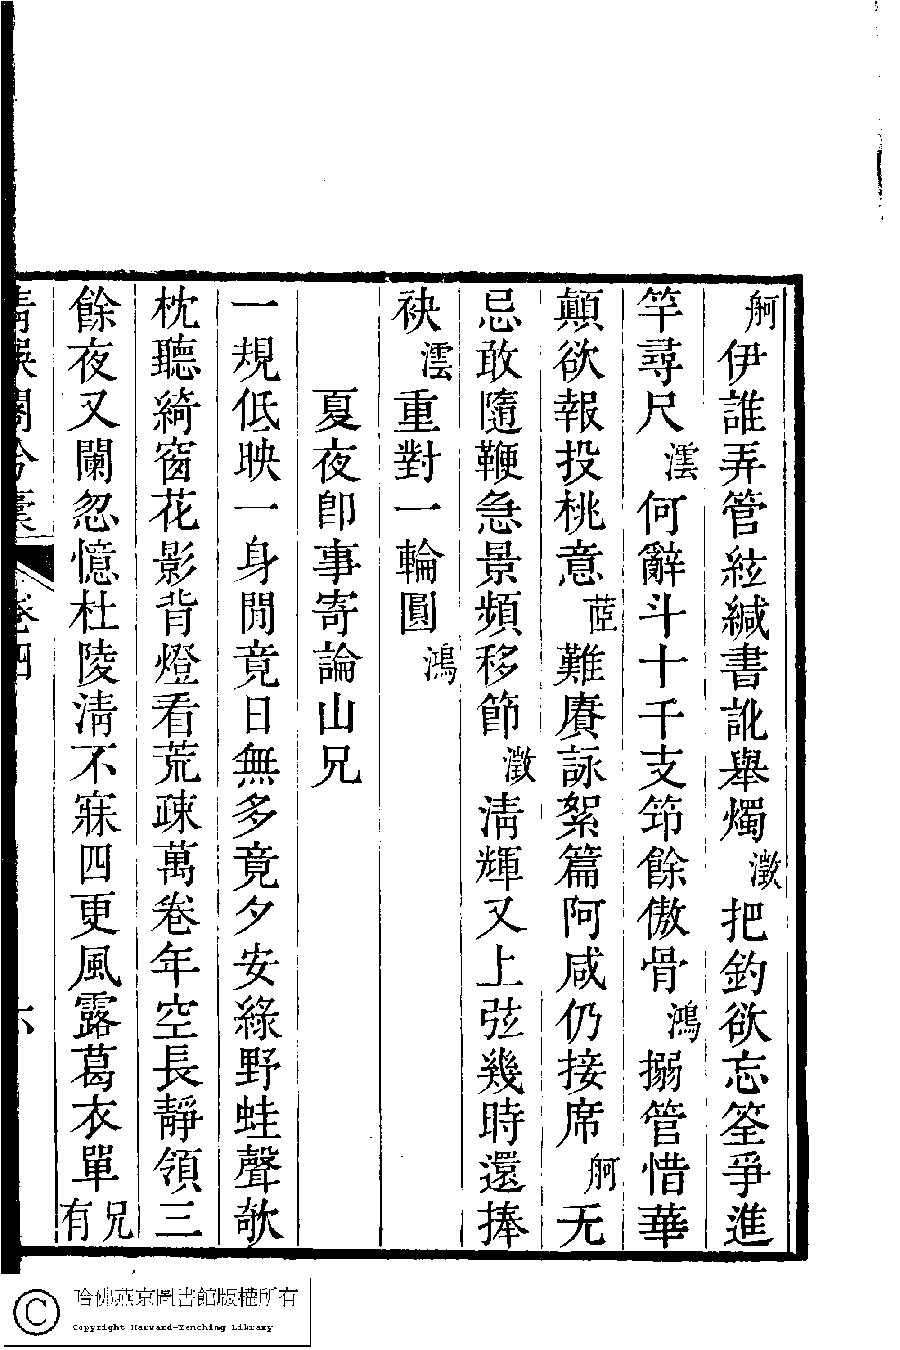 舸伊誰弄管絃緘書訛舉燭澂把釣欲忘筌爭進
竿尋尺澐何辭斗十千支笻餘傲骨鴻搦管惜華
顛欲報投桃意茝難賡詠絮篇阿咸仍接席舸无
忌敢隨鞭急景頻移節澂淸輝又上弦幾時還捧
袂澐重對一輪圓鴻
夏夜卽事寄論山兄
一規低映一身閒竟日無多竟夕安綠野蛙聲欹
枕聽綺窗花影背燈看荒疎萬卷年空長靜領三
餘夜又闌忽憶杜陵淸不寐四更風露葛衣單兄有
卷四
六
哈佛燕京圖書館版權所有
Copyright Harvard-Yenching Library